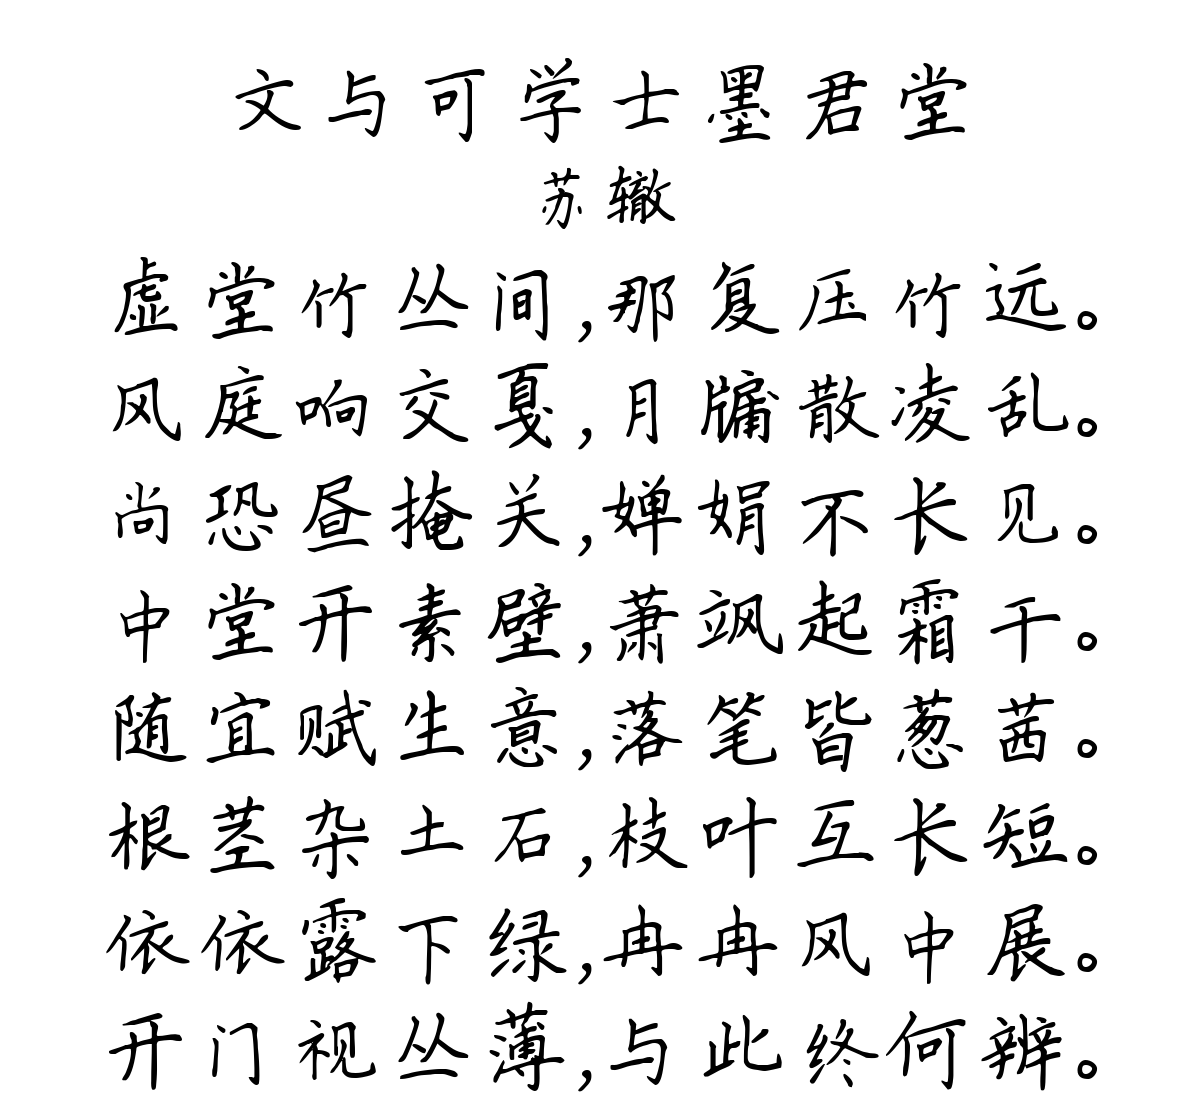 文与可学士墨君堂
苏辙
虚堂竹丛间,那复压竹远。
风庭响交戛,月牖散凌乱。
尚恐昼掩关,婵娟不长见。
中堂开素壁,萧飒起霜干。
随宜赋生意,落笔皆葱茜。
根茎杂土石,枝叶互长短。
依依露下绿,冉冉风中展。
开门视丛薄,与此终何辨。